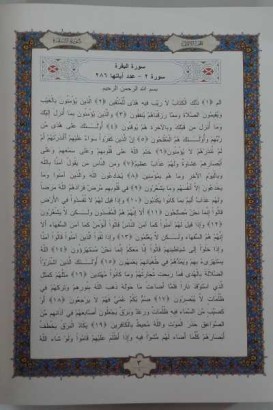 سورة البقرة
سورة ٢ - عدد آياتها ٢٨٦
بسم الله الرحمن الرحيم
الم (١) ذلك الكتاب لا ريب فيه هدى للمتقين (٢) الذين يؤمنون بالغيب
ويقيمون الصلاة ومما رزقناهم ينفقون (٣) والذين يؤمنون بما أنزل إليك
وما أنزل من قبلك وبالآخرة هم يوقنون (٤) أولـئك على هدى من
ربهم وأولـئك هم المفلحون (٥) إن الذين كفروا سواء عليهم أأنذرتهم أم
لم تنذرهم لا يؤمنون (٦) ختم الله على قلوبهم وعلى سمعهم وعلى
أبصارهم غشاوة ولهم عذاب عظيم (٧) ومن الناس من يقول آمنا بالله
وباليوم الآخر وما هم بمؤمنين (٨) يخادعون الله والذين آمنوا وما
يخدعون إلا أنفسهم وما يشعرون (٩) في قلوبهم مرض فزادهم الله مرضا
ولهم عذاب أليم بما كانوا يكذبون (١٠) وإذا قيل لهم لا تفسدوا في الأرض
قالوا إنما نحن مصلحون (١١) ألا إنهم هم المفسدون ولـكن لا يشعرون
(١٢) وإذا قيل لهم آمنوا كما آمن الناس قالوا أنؤمن كما آمن السفهاء ألا
إنهم هم السفهاء ولـكن لا يعلمون (١٣) وإذا لقوا الذين آمنوا قالوا آمنا
وإذا خلوا إلى شياطينهم قالوا إنا معكم إنما نحن مستهزؤون (١٤) الله
يستهزئ بهم ويمدهم في طغيانهم يعمهون (١٥) أولـئك الذين اشتروا
الضلالة بالهدى فما ربحت تجارتهم وما كانوا مهتدين (١٦) مثلهم كمثل
الذي استوقد نارا فلما أضاءت ما حوله ذهب الله بنورهم وتركهم في
ظلمات لا يبصرون (١٧) صم بكم عمي فهم لا يرجعون (١٨) أو
كصيب من السماء فيه ظلمات ورعد وبرق يجعلون أصابعهم في آذانهم من
الصواعق حذر الموت والله محيط بالكافرين (١٩) يكاد البرق يخطف
أبصارهم كلما أضاء لهم مشوا فيه وإذا أظلم عليهم قاموا ولو شاء الله